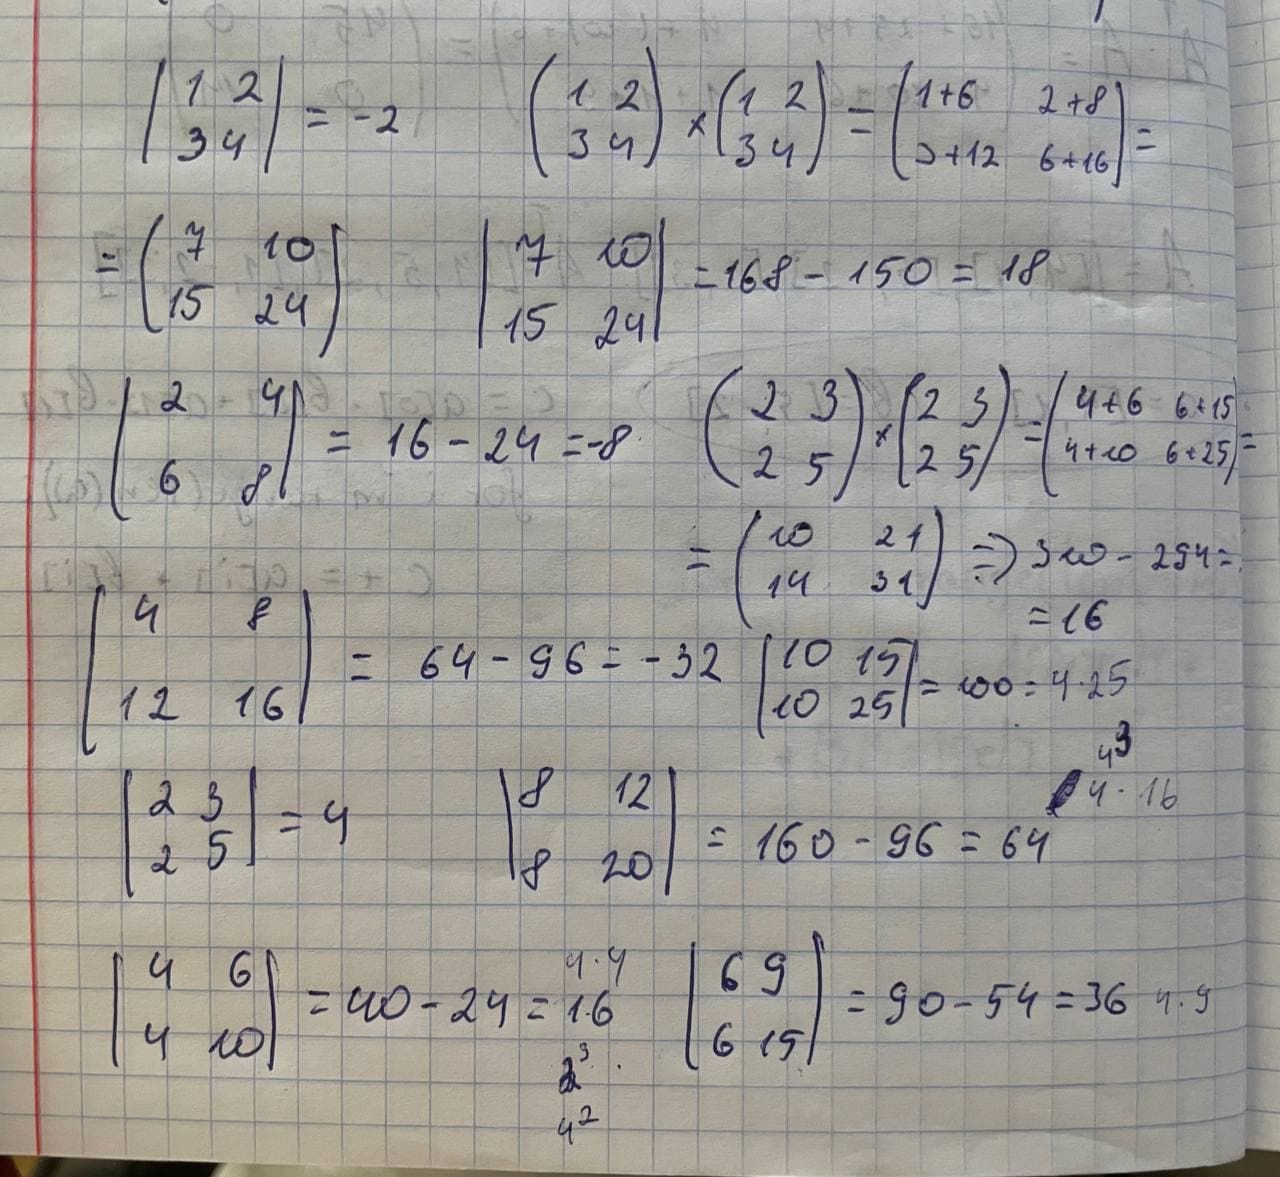 |1 2; 3 4| = -2    (1 2; 3 4) × (1 2; 3 4) = (1+6 2+8; 3+12 6+16) =
= (7 10; 15 24)    |7 10; 15 24| = 168 - 150 = 18
|2 4; 6 8| = 16 - 24 = -8    (2 3; 2 5) × (2 3; 2 5) = (4+6 6+15; 4+10 6+25) =
= (10 21; 14 31) => 310 - 294 =
= 16
|4 8; 12 16| = 64 - 96 = -32    |10 15; 10 25| = 100 = 4·25
|2 3; 2 5| = 4    |8 12; 8 20| = 160 - 96 = 64    4·16    4³
|4 6; 4 10| = 40 - 24 = 16    4·4    4²    |6 9; 6 15| = 90 - 54 = 36    4·9